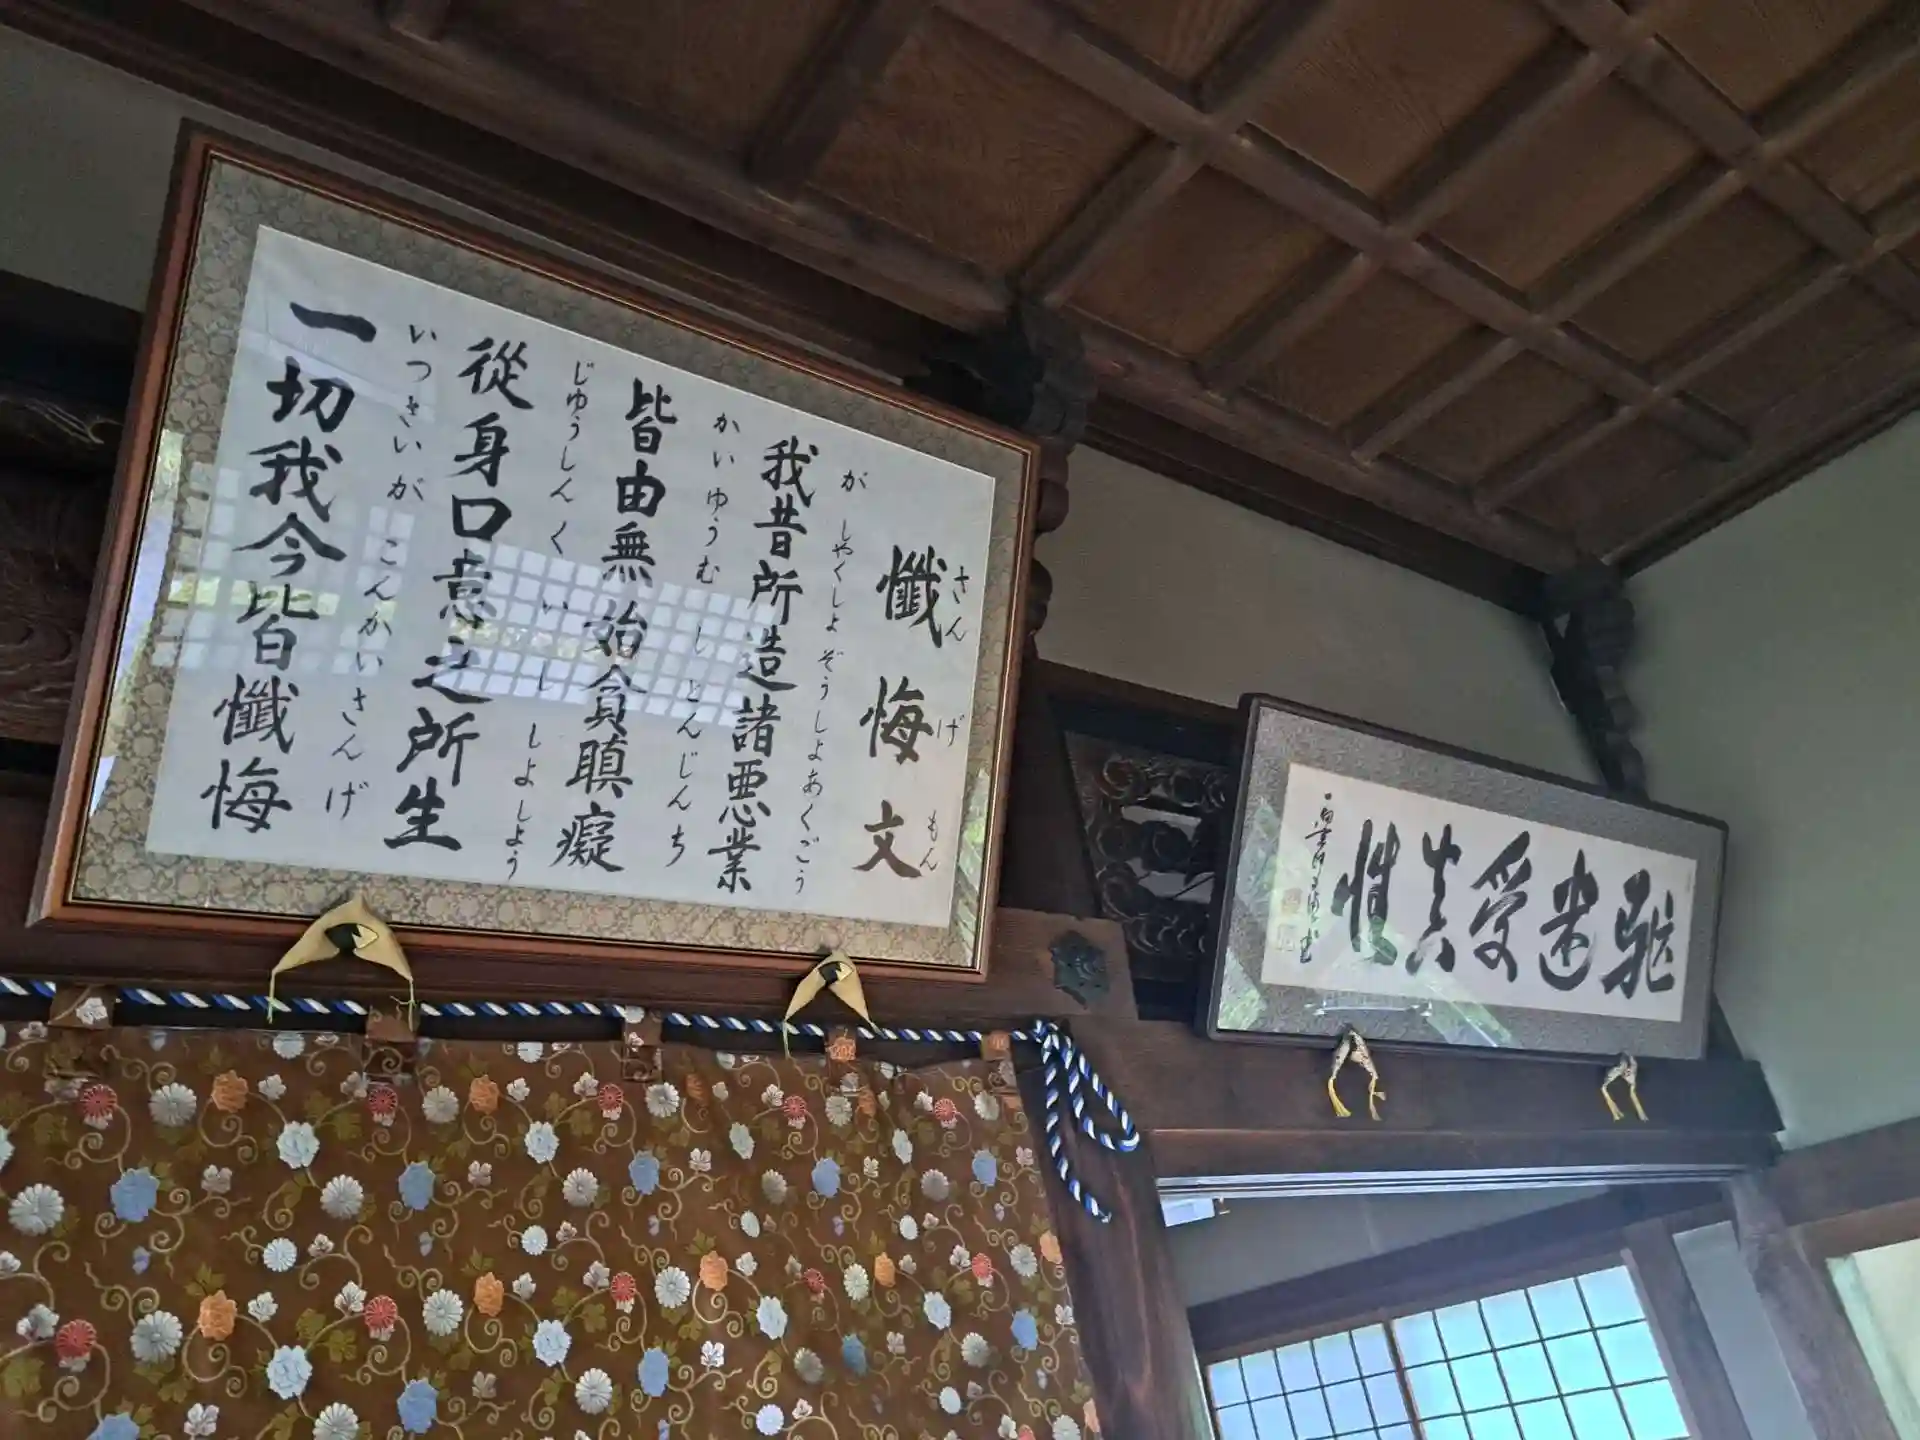 懺悔文
さんげもん
我昔所造諸悪業
がしやくしょぞうしよあくごう
皆由無始貪瞋癡
かいゆうむしとんじんち
從身口意之所生
じゅうしんくいししよしよう
一切我今皆懺悔
いつさいがこんかいさんげ
受真性